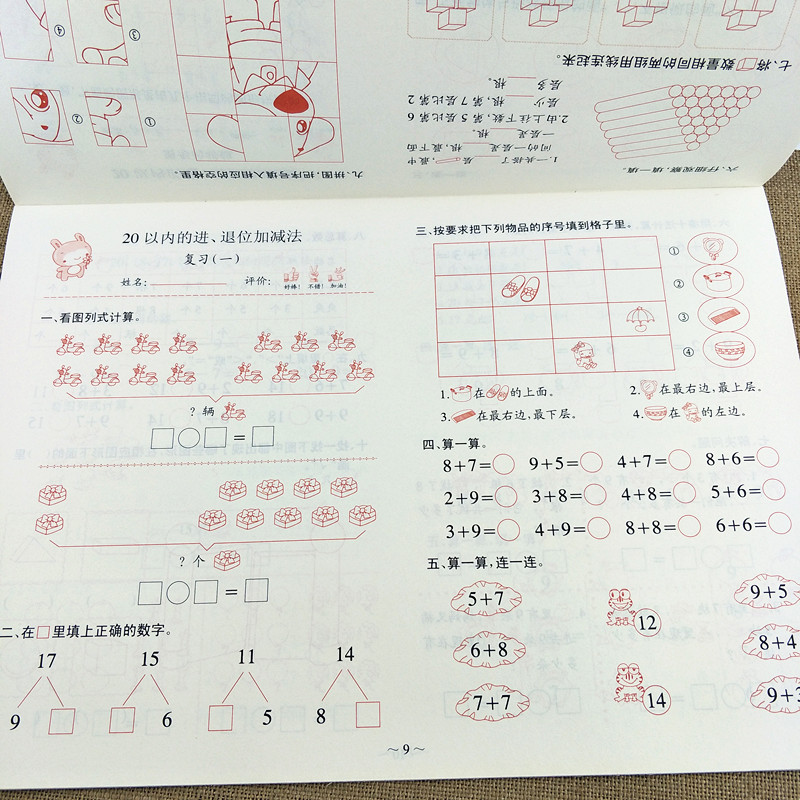 六、仔细观察,填一填。
1.一共搭了____层,最中
间的一层是____根,最下面
一层是____根。
2.由上往下数,第5层比第6
层少____根,第7层比第2
层多____根。
七、将□数量相同的两组用线连起来。
九、拼图,把序号填入相应的空格里。
① ②
③ ④
20以内的进、退位加减法
复习(一)
姓名: 评价: 好棒! 不错! 加油!
一、看图列式计算。
? 辆
□○□=□
? 个
□○□=□
二、在□里填上正确的数字。
17 15 11 14
9 □ □ 6 □ 5 8 □
三、按要求把下列物品的序号填到格子里。
①
②
③
④
1. 在 的上面。 2. 在最右边,最上层。
3. 在最右边,最下层。 4. 在 的左边。
四、算一算。
8+7=○ 9+5=○ 4+7=○ 8+6=○
2+9=○ 3+8=○ 4+8=○ 5+6=○
3+9=○ 4+9=○ 8+8=○ 6+6=○
五、算一算,连一连。
5+7 12 9+5
6+8 8+4
7+7 14 9+3
~9~